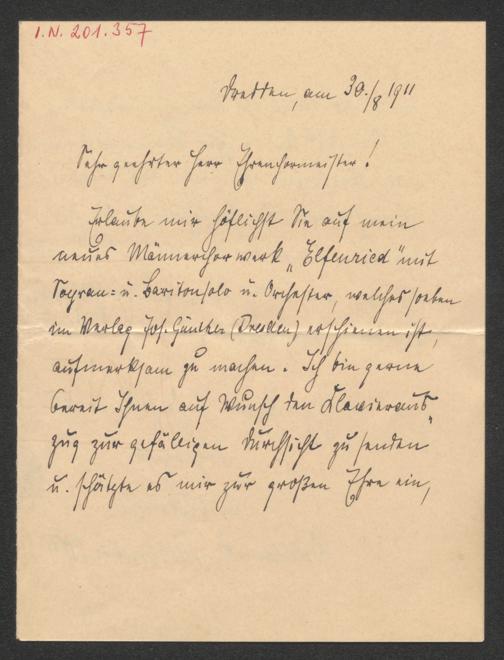 I.N. 201.357
Dresden, am 30./8 1911
Sehr geehrter Herr Ehrenchormeister!
Erlaube mir höflichst Sie auf mein
neues Männerchorwerk „Elfenried" mit
Sopran= u. Baritonsolo u. Orchester, welches soeben
im Verlag Jos. Günther (Dresden) erschienen ist,
aufmerksam zu machen. Ich bin gerne
bereit Ihnen auf Wunsch den Klavieraus„
zug zur gefälligen Durchsicht zu senden
u. schätzte es mir zur großen Ehre ein,